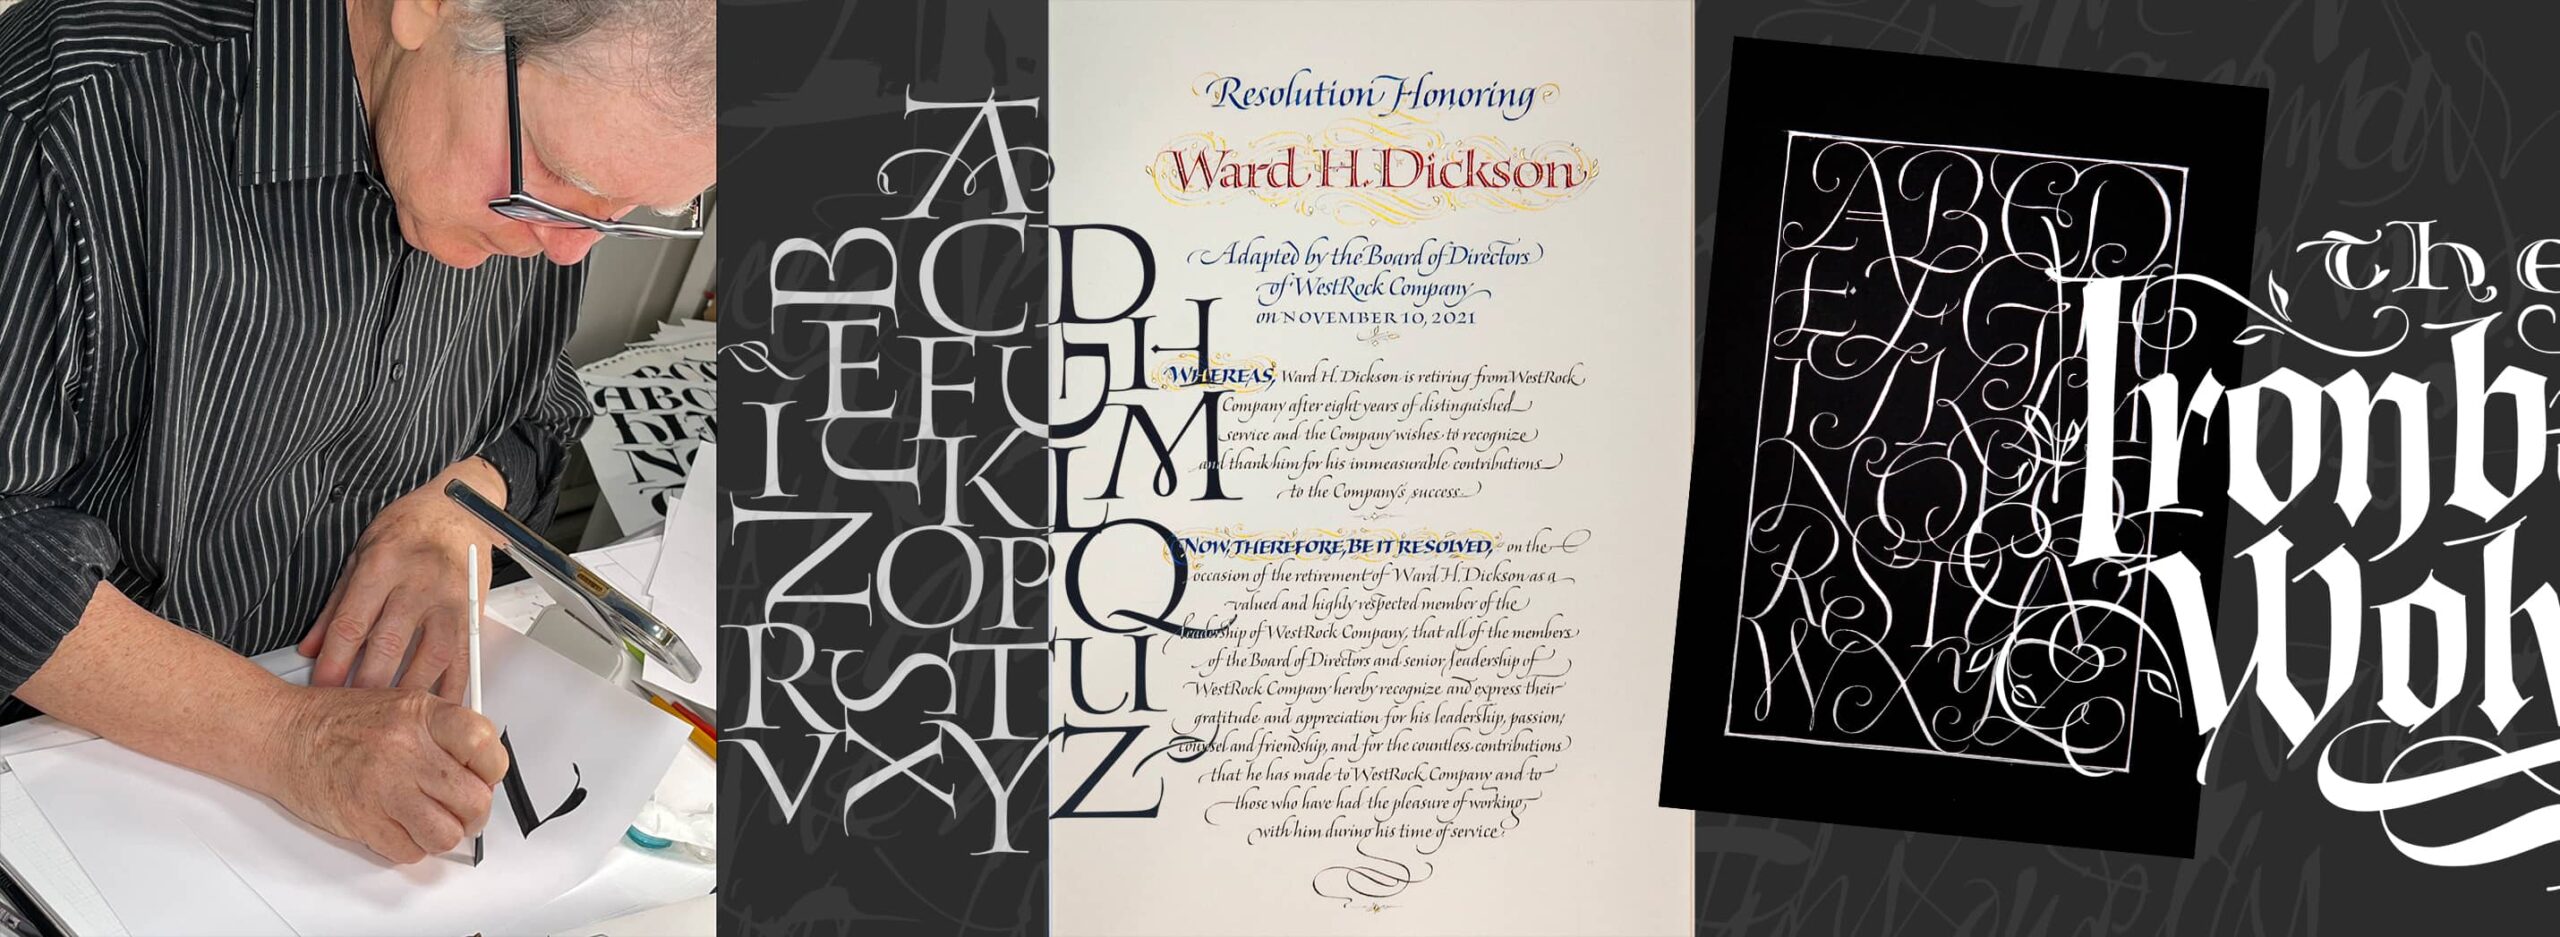 A
B C D
E F G H
I J K L M
N O P Q
R S T U
V X Y Z
Resolution Honoring
Ward H. Dickson
Adapted by the Board of Directors
of WestRock Company
on NOVEMBER 10, 2021
WHEREAS, Ward H. Dickson is retiring from WestRock
Company after eight years of distinguished
service and the Company wishes to recognize
and thank him for his immeasurable contributions
to the Company's success.
NOW, THEREFORE, BE IT RESOLVED, on the
occasion of the retirement of Ward H. Dickson as a
valued and highly respected member of the
leadership of WestRock Company, that all of the members
of the Board of Directors and senior leadership of
WestRock Company hereby recognize and express their
gratitude and appreciation for his leadership, passion,
counsel and friendship, and for the countless contributions
that he has made to WestRock Company and to
those who have had the pleasure of working
with him during his time of service.
A B C D
E F G
N O P
R S T
W X Y Z
the
Ironb
Wol